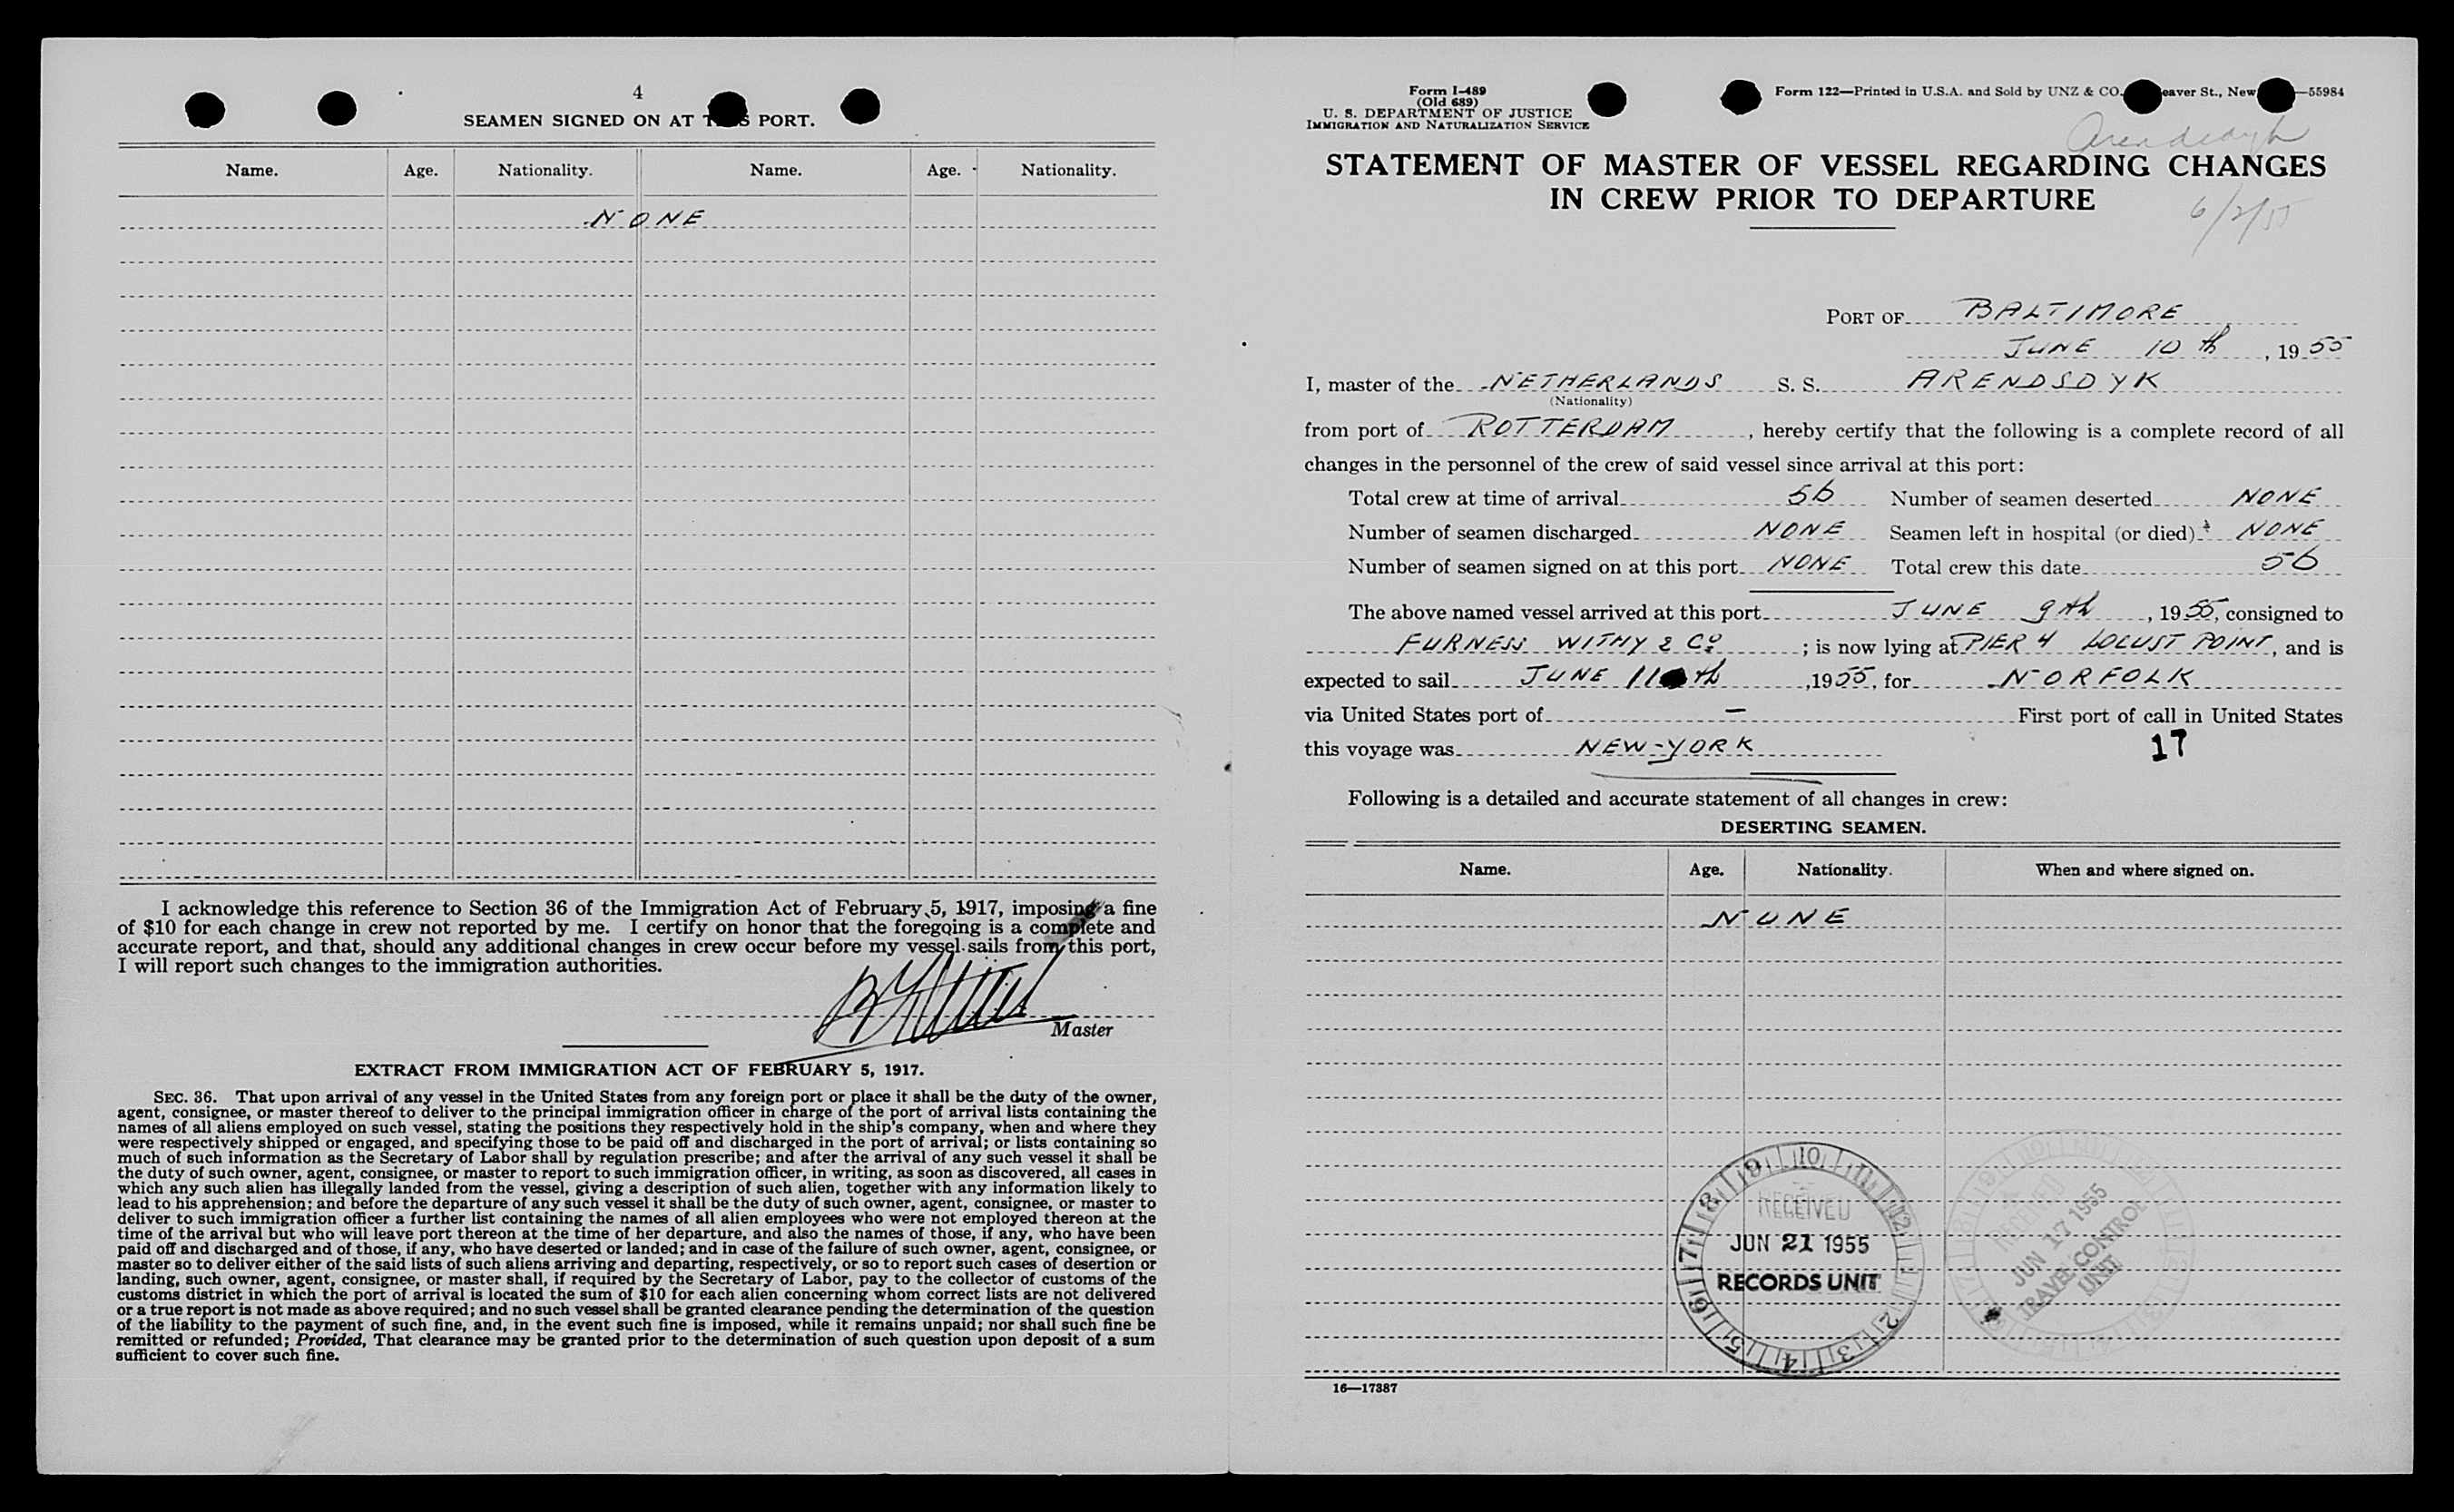 4
SEAMEN SIGNED ON AT THIS PORT.
Name. Age. Nationality. Name. Age. Nationality.
NONE
I acknowledge this reference to Section 36 of the Immigration Act of February 5, 1917, imposing a fine
of $10 for each change in crew not reported by me. I certify on honor that the foregoing is a complete and
accurate report, and that, should any additional changes in crew occur before my vessel sails from this port,
I will report such changes to the immigration authorities.
Master
EXTRACT FROM IMMIGRATION ACT OF FEBRUARY 5, 1917.
SEC. 36. That upon arrival of any vessel in the United States from any foreign port or place it shall be the duty of the owner,
agent, consignee, or master thereof to deliver to the principal immigration officer in charge of the port of arrival lists containing the
names of all aliens employed on such vessel, stating the positions they respectively hold in the ship's company, when and where they
were respectively shipped or engaged, and specifying those to be paid off and discharged in the port of arrival; or lists containing so
much of such information as the Secretary of Labor shall by regulation prescribe; and after the arrival of any such vessel it shall be
the duty of such owner, agent, consignee, or master to report to such immigration officer, in writing, as soon as discovered, all cases in
which any such alien has illegally landed from the vessel, giving a description of such alien, together with any information likely to
lead to his apprehension; and before the departure of any such vessel it shall be the duty of such owner, agent, consignee, or master to
deliver to such immigration officer a further list containing the names of all alien employees who were not employed thereon at the
time of the arrival but who will leave port thereon at the time of her departure, and also the names of those, if any, who have been
paid off and discharged and of those, if any, who have deserted or landed; and in case of the failure of such owner, agent, consignee, or
master so to deliver either of the said lists of such aliens arriving and departing, respectively, or so to report such cases of desertion or
landing, such owner, agent, consignee, or master shall, if required by the Secretary of Labor, pay to the collector of customs of the
customs district in which the port of arrival is located the sum of $10 for each alien concerning whom correct lists are not delivered
or a true report is not made as above required; and no such vessel shall be granted clearance pending the determination of the question
of the liability to the payment of such fine, and, in the event such fine is imposed, while it remains unpaid; nor shall such fine be
remitted or refunded; Provided, That clearance may be granted prior to the determination of such question upon deposit of a sum
sufficient to cover such fine.
Form I-489
(Old 689)
U. S. DEPARTMENT OF JUSTICE
IMMIGRATION AND NATURALIZATION SERVICE
Form 122—Printed in U.S.A. and Sold by UNZ & CO. eaver St., New —55984
Arendsdyk
STATEMENT OF MASTER OF VESSEL REGARDING CHANGES
IN CREW PRIOR TO DEPARTURE
6/2/55
PORT OF BALTIMORE
JUNE 10 th, 1955
I, master of the NETHERLANDS S. S. ARENDSDYK
(Nationality)
from port of ROTTERDAM, hereby certify that the following is a complete record of all
changes in the personnel of the crew of said vessel since arrival at this port:
Total crew at time of arrival 56 Number of seamen deserted NONE
Number of seamen discharged NONE Seamen left in hospital (or died) NONE
Number of seamen signed on at this port NONE Total crew this date 56
The above named vessel arrived at this port JUNE 9th, 1955, consigned to
FURNESS WITHY & Co; is now lying at PIER 4 LOCUST POINT, and is
expected to sail JUNE 11 th, 1955, for NORFOLK
via United States port of — First port of call in United States
this voyage was NEW-YORK 17
Following is a detailed and accurate statement of all changes in crew:
DESERTING SEAMEN.
Name. Age. Nationality. When and where signed on.
NONE
RECEIVED
JUN 21 1955
RECORDS UNIT
9 10 11 12 1 2 3 4 5 6 7 8
RECEIVED
JUN 17 1955
TRAVEL CONTROL
UNIT
16—17387